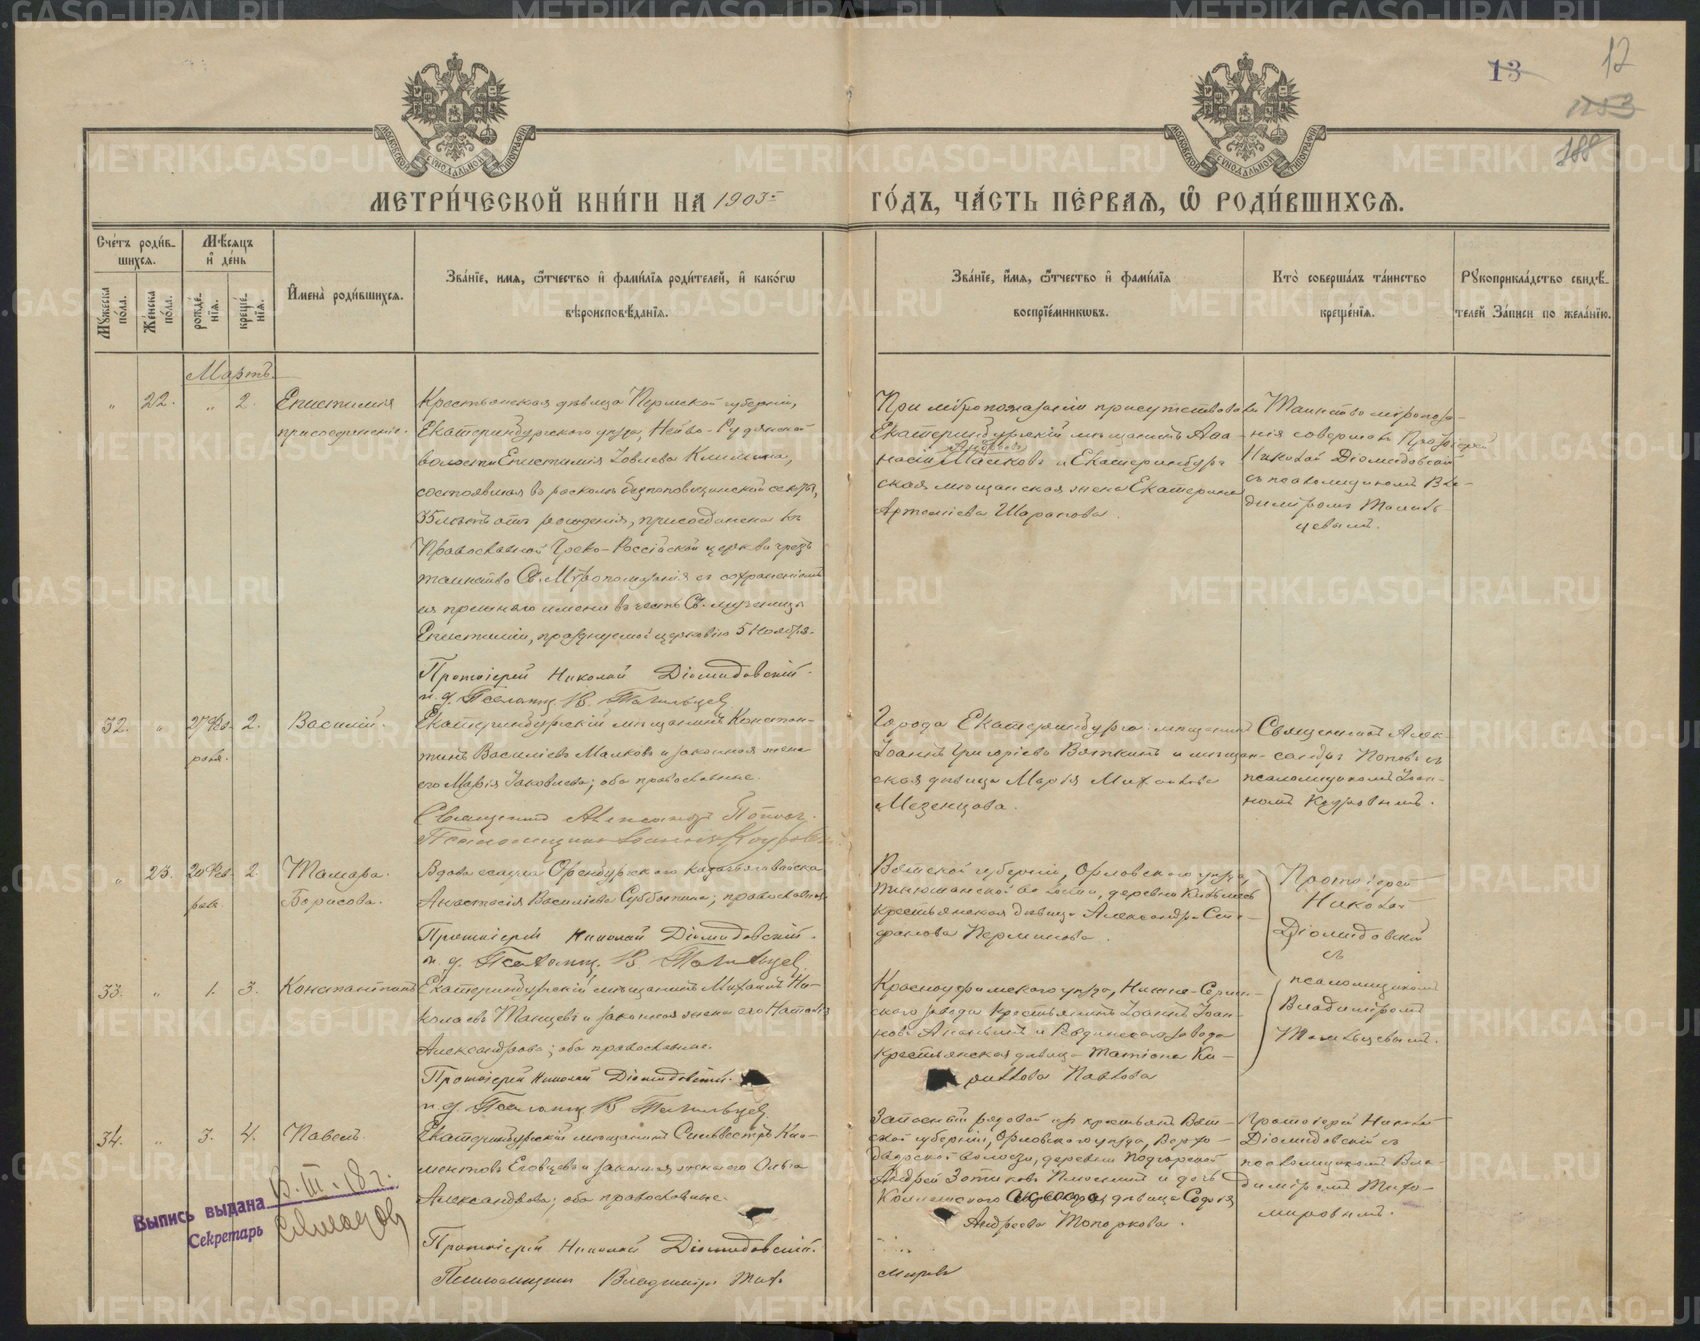 13
12
1153
188
МОСКОВСКОЙ СѴНОДАЛЬНОЙ ТИПОГРАФІИ
МОСКОВСКОЙ СѴНОДАЛЬНОЙ ТИПОГРАФІИ
МЕТРИ́ЧЕСКОЙ КНИ́ГИ НА 1903 ГО́ДЪ, ЧА́СТЬ ПЕ́РВАѦ, Ѡ РОДИ́ВШИХСѦ.
Сче́тъ роди́в-
шихсѧ.
Мꙋ́жеска по́ла.
Же́нска по́ла.
Мѣ́сѧцъ
и де́нь
рожде́нїѧ.
креще́нїѧ.
И҆мена̀ роди́вшихсѧ.
Зва́нїе, имѧ, ѻ҆́тчество и҆ фами́лїѧ роди́телей, и҆ како́гѡ
вѣроисповѣ́данїѧ.
Зва́нїе, и҆́мѧ, ѻ҆́тчество и҆ фами́лїѧ
воспрїе́мникѡвъ.
Кто̀ соверша́лъ та́инство
креще́нїѧ.
Рꙋкоприкла́дство свидѣ́-
телей за́писи по жела́нїю.
Мартъ.
" 22. " 2. Епистимія
присоединеніе.
Крестьянская дѣвица Пермской губерніи,
Екатеринбургскаго уѣзда, Нейво-Рудянской
волости Епистимія Іовлева Климина,
состоявшая въ расколѣ безпоповщинской секты,
35 лѣтъ отъ рожденія, присоединена къ
Православной Греко-Россійской церкви чрезъ
таинство Св. Мѵропомазанія съ сохраненіемъ
ея прежняго имени въ честь Св. мученицы
Епистиміи, празднуемой церковію 5 Ноября.
Протоіерей Николай Діомидовскій.
и. д. Псаломщ. В. Тагильцев
При мѵропомазаніи присутствовали
Екатеринбургскій мѣщанинъ Аѳа-
насій Андреевъ Малковъ и Екатеринбург-
ская мѣщанская жена Екатерина
Артеміева Шарапова.
Таинство мѵропома-
нія совершалъ Протоіерей
Николай Діомидовскій
съ псаломщикомъ Вла-
диміромъ Тагиль-
цевымъ.
32. " 27 Фев-
раля. 2. Василій.
Екатеринбургскій мѣщанинъ Констан-
тинъ Василіевъ Малковъ и законная жена
его Марія Іаковлева; оба православные.
Священникъ Александръ Поповъ.
Псаломщикъ Іоаннъ Кузовлевъ
Города Екатеринбурга мѣщанинъ
Іоаннъ Григоріевъ Вяткинъ и мѣщан-
ская дѣвица Марія Михаилова
Мезенцова.
Священникъ Алек-
сандръ Поповъ съ
псаломщикомъ Іоан-
номъ
" 23. 20 Фев-
раля 2 Тамара.
Борисова.
Вдова Оренбургскаго казачьяго войска
Анастасія Василіева Субботина; православная.
Протоіерей Николай Діомидовскій.
и. д. Псаломщ. В. Тагильцев.
Вятской губерніи, Орловскаго уѣзда,
волости, деревни
крестьянская дѣвица Александра Сте-
фанова Перминова.
Протоіерей
Николай
Діомидовскій
съ
псаломщикомъ
Владиміромъ
Тагильцевымъ.
33. " 1. 3. Константинъ
Екатеринбургскій мѣщанинъ Михаилъ Ни-
колаевъ и законная жена его Наталія
Александрова; оба православные.
Протоіерей Николай Діомидовскій.
и. д. Псаломщ. В. Тагильцев.
Красноуфимскаго уѣзда, Нижне-Сергин-
скаго завода крестьянинъ Іоаннъ Іоан-
новъ и завода
крестьянская дѣвица Татіана Ки-
риллова Павлова
34. " 3. 4. Павелъ.
Екатеринбургскій мѣщанинъ Сильвестръ Кли-
ментовъ и законная жена его Ольга
Александрова; оба православные.
Протоіерей Николай Діомидовскій.
Псаломщикъ Владиміръ Тихо-
Запасный рядовой изъ крестьянъ Вят-
ской губерніи, Орловскаго уѣзда,
волости, деревни Подгорской
Андрей Зотиковъ и дочь
дѣвица Софія
Андреева Топоркова.
мировъ
Протоіерей Николай
Діомидовскій съ
псаломщикомъ Вла-
диміромъ Тихо-
мировымъ.
Выпись выдана 13.III.18 г.
Секретарь
METRIKI.GASO-URAL.RU